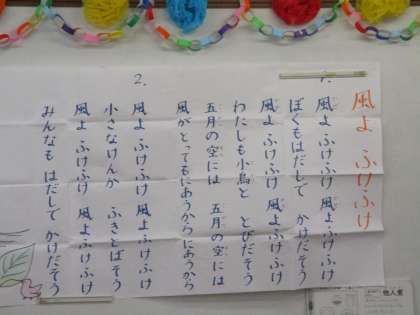 風よ ふけふけ
1.
風よ ふけふけ 風よ ふけふけ
ぼくもはだしで かけだそう
風よ ふけふけ 風よ ふけふけ
わたしも小鳥と とびだそう
五月の空には 五月の空には
風がとってもにあうからにあうから
2.
風よ ふけふけ 風よ ふけふけ
小さなけんか ふきとばそう
風よ ふけふけ 風よ ふけふけ
みんなも はだしで かけだそう
他人煮